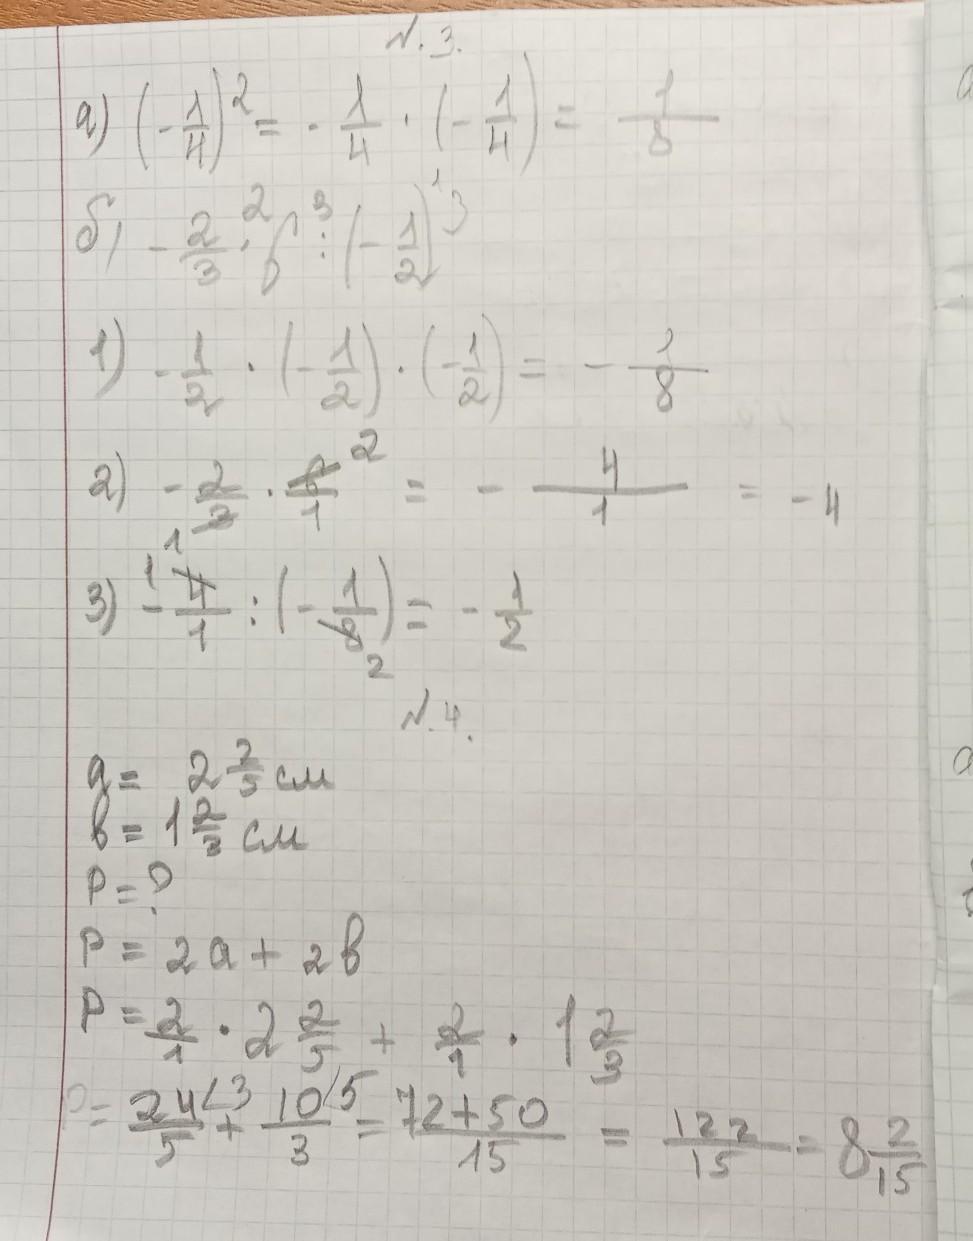 N.3.
а) (-1/4)² = - 1/4 · (- 1/4) = 1/8
б) - 2/3 ·² 6 :³ (- 1/2)¹ ³
1) - 1/2 · (- 1/2) · (- 1/2) = - 1/8
2) - 2/3 1 · 6/1 2 = - 4/1 = -4
3) 1 - 4/1 : (- 1/8 2) = - 1/2
N.4.
a = 2 2/5 см
в = 1 2/3 см
P = ?
P = 2a + 2в
P = 2/1 · 2 2/5 + 2/1 · 1 2/3
P = 24/5 (3 + 10/3 (5 = 72+50/15 = 122/15 = 8 2/15